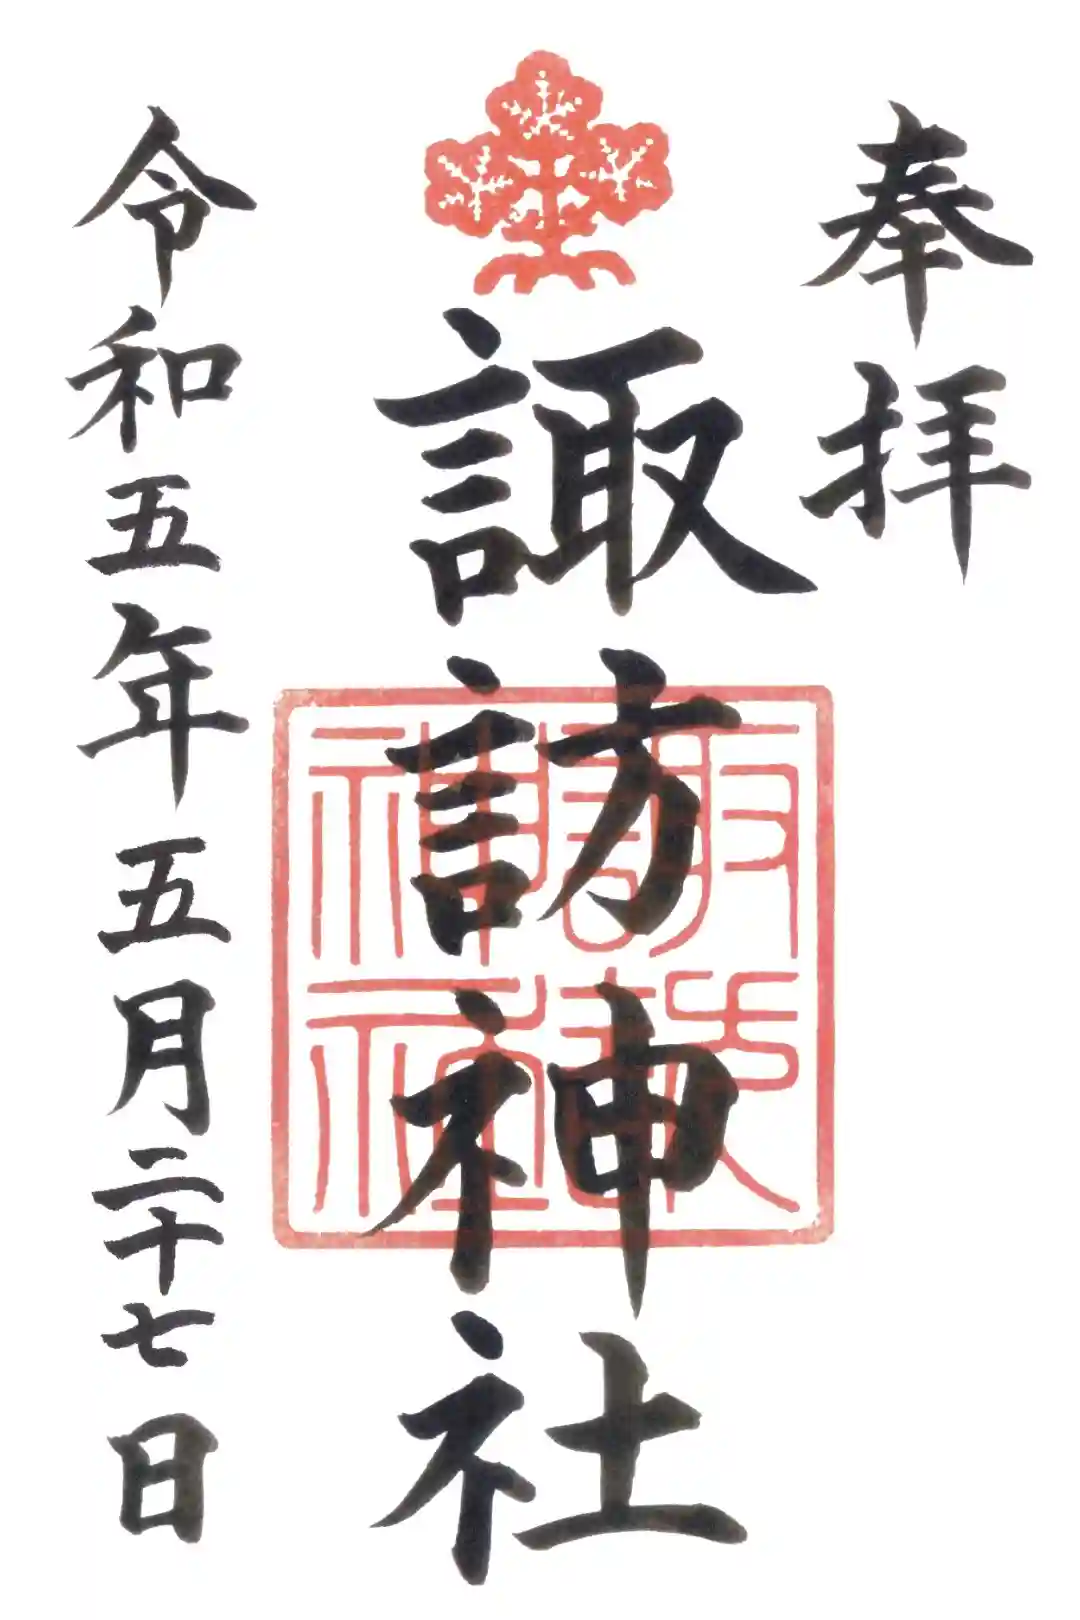 奉拝
諏訪神社
令和五年五月二十七日
諏訪神社